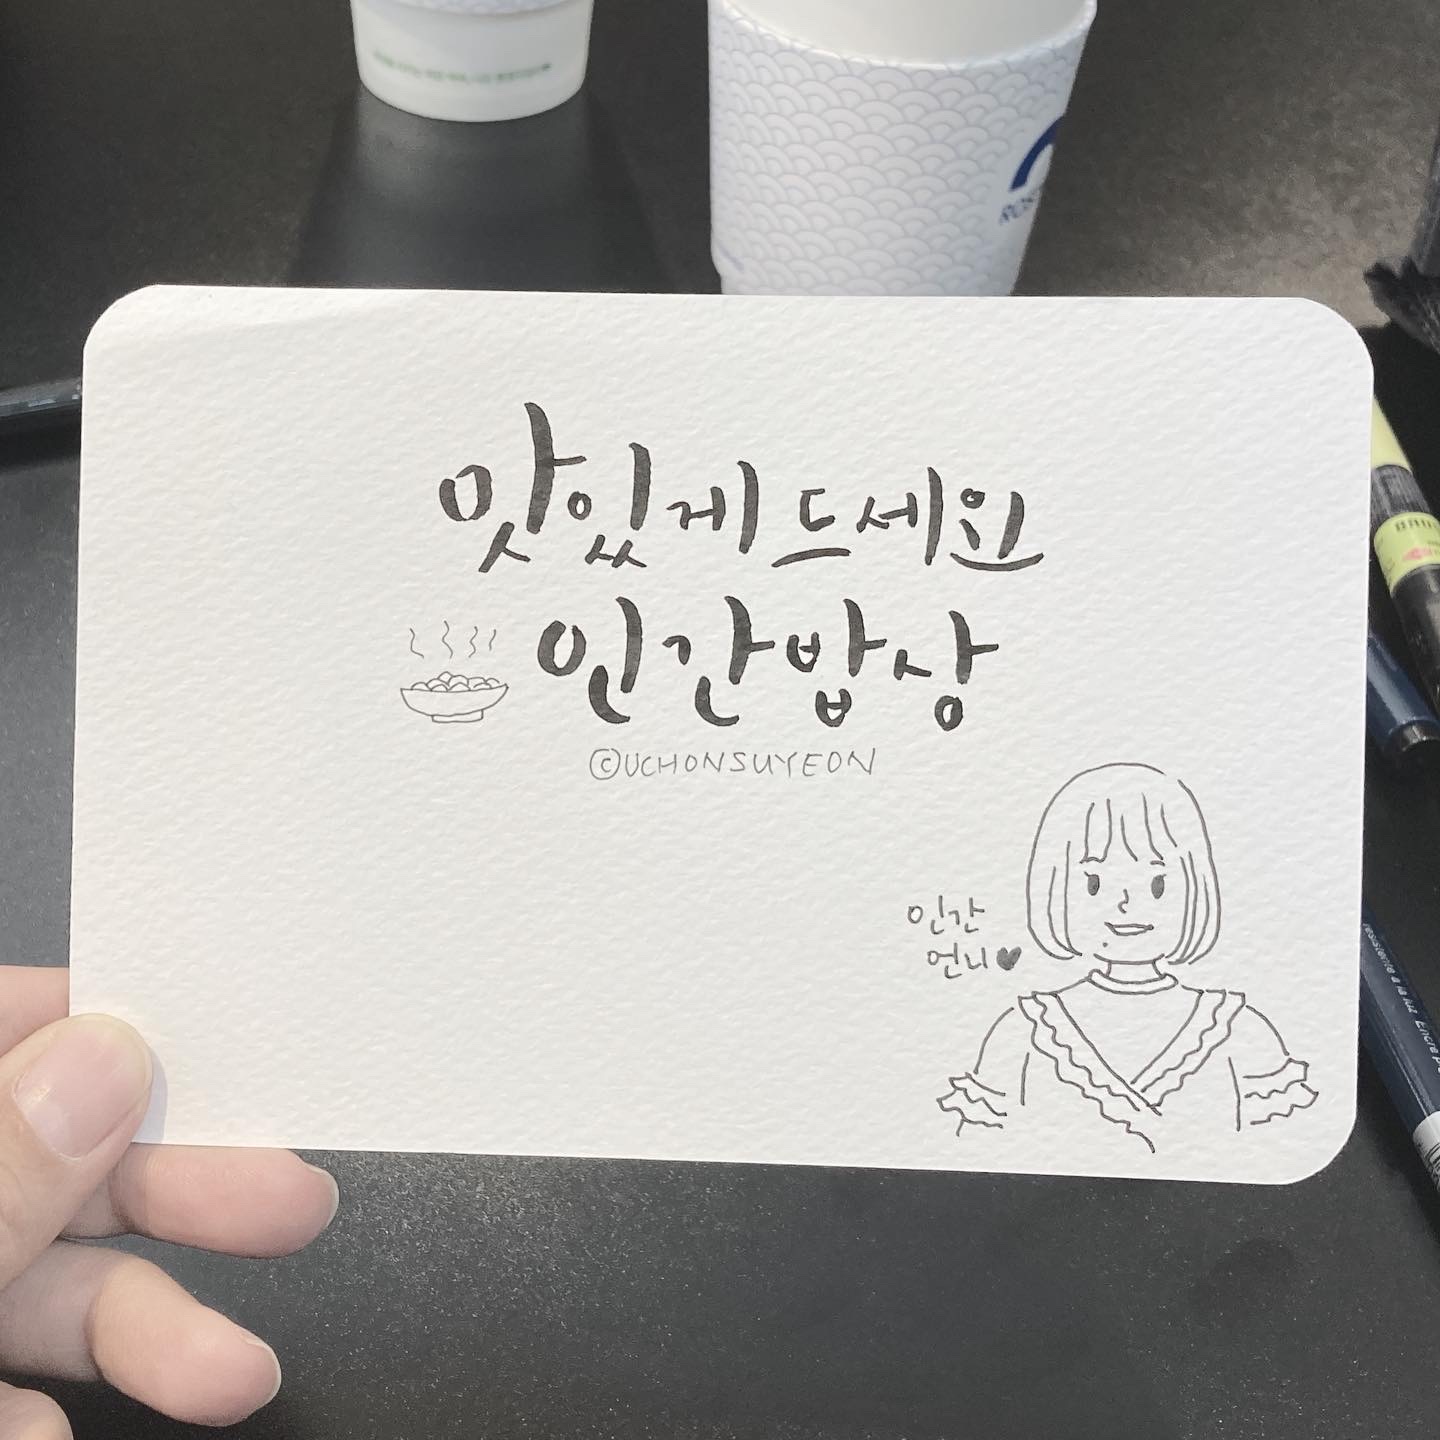 맛있게 드세요
인간밥상
©UCHONSUYEON
인간
언니♥